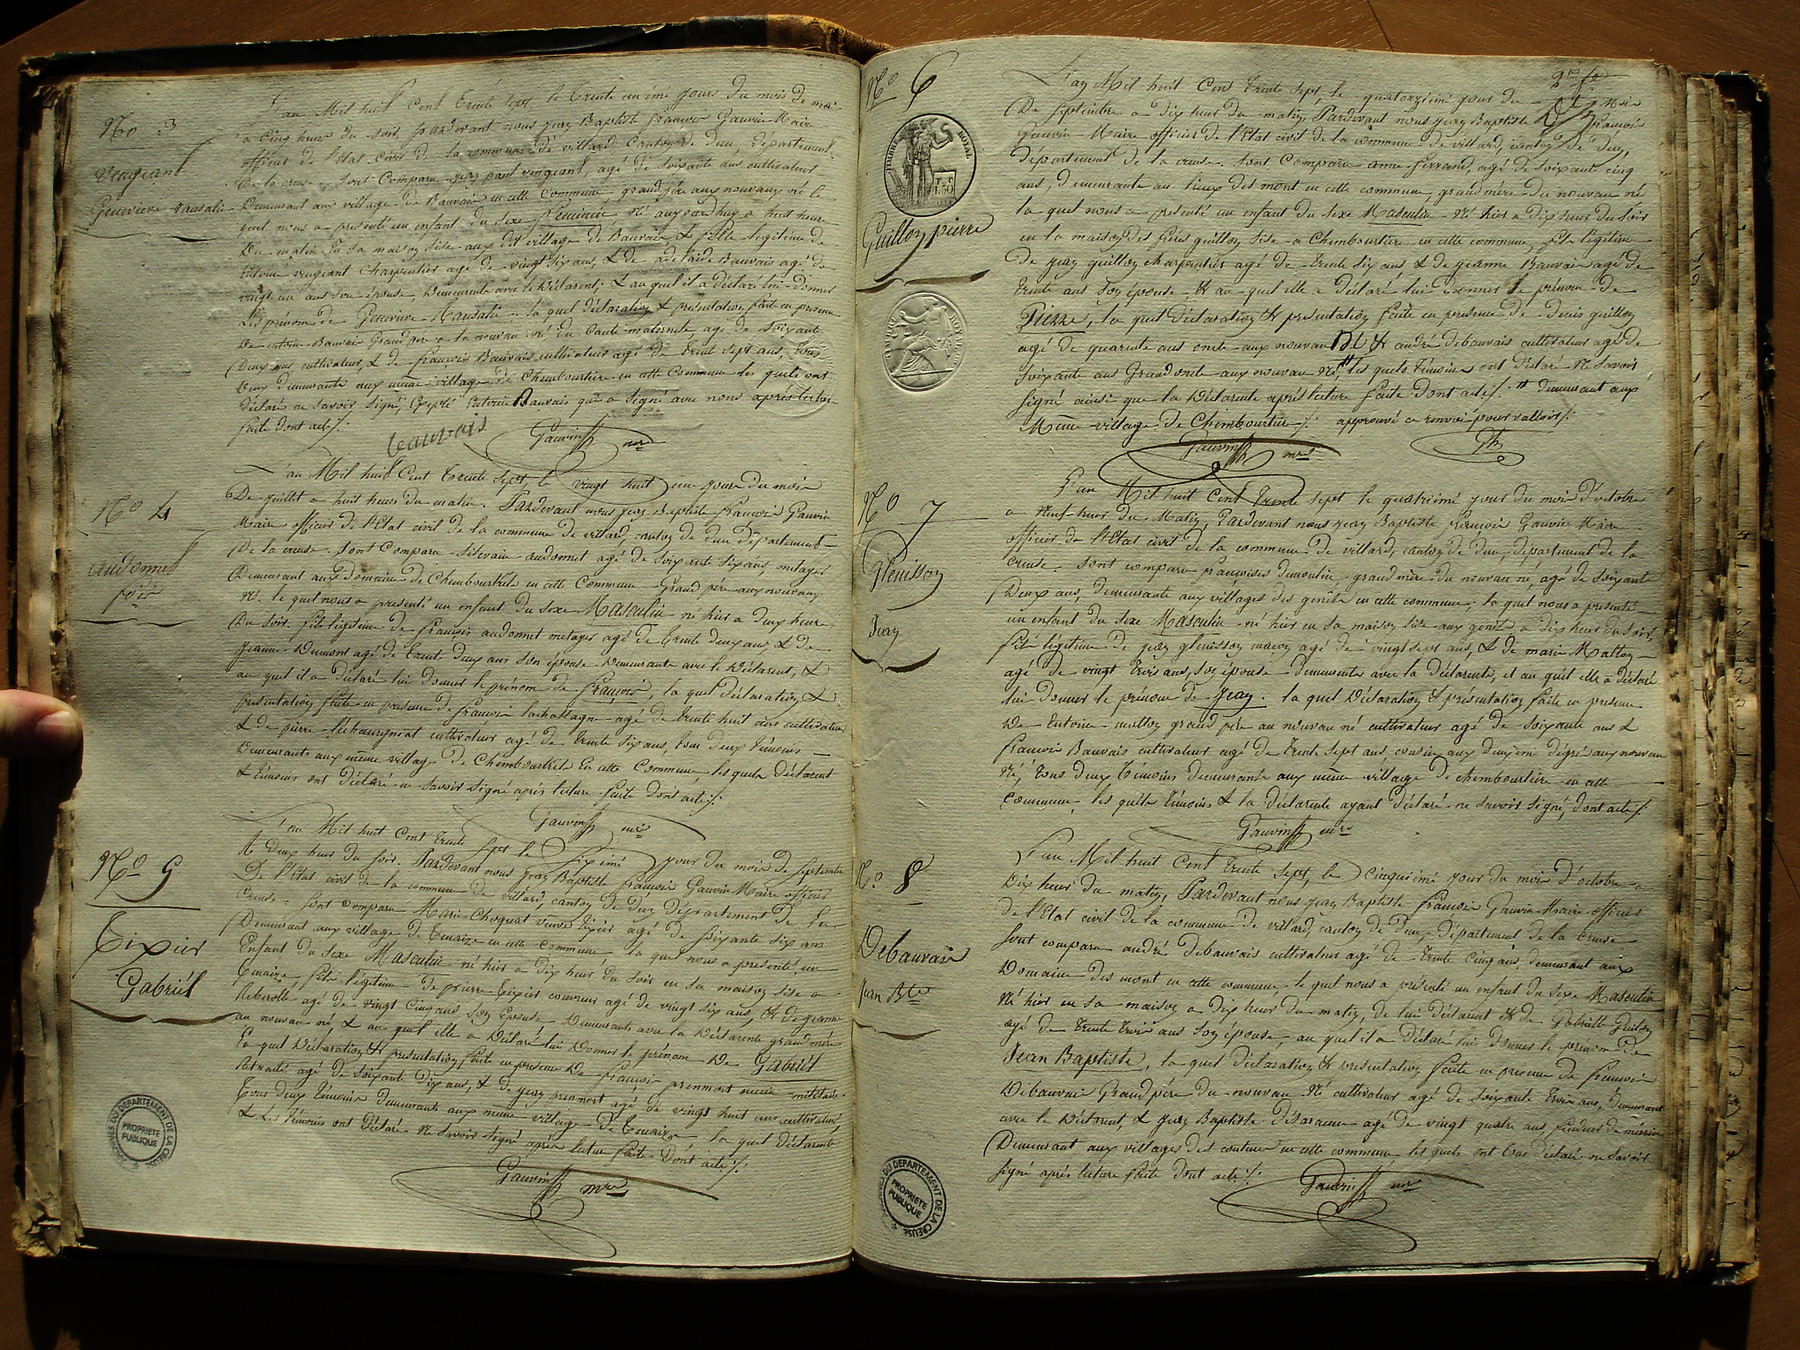 No 3
vengeant
Genevieve Mansalie
L'an Mil huit Cent Trente Sept, le Trente un ème jours du mois de mai
a Cinq heure du soir, pardevant nous jean Baptiste françois Gauvin Maire
officier de l'état civil de la commune de villard Canton de Dun, département
De la creuse, Sont Comparu paul vengeant, agé de Soixante ans cultivateur
Demeurant aux village de Bauvais en cette Commune grand père aux nouveaux né le
quel nous a présenté un enfant du Sexe Feminin né aujourd'huy a huit heure
Du matin en la maison sise aux dit village de Bauvais & fille légitime de
vengeant Charpentier agé de vingt Six ans, & de adelaïde Bauvais agé de
vingt un ans Son épouse, Demeurante avec le Déclarent, & au quel il a déclaré lui donner
les prénom de Genevieve Mansalie, la quel déclaration & présentation faite en présence
De Bauvais Grand père a la nouveau né du Coté maternelle, agé de Soixante
Deux ans cultivateur, & de françois Bauvais cultivateur agé de Trente Sept ans, Tous
Deux demeurants aux même village de Chembourtière en cette Commune les quels ont
déclaré ne Savoir Signé, Excepté Bauvais qui a Signé avec nous après lecture
faite dont acte ./.
bauvais Gauvin mre
No 4
audonnet
fois
L'an Mil huit Cent Trente Sept, le vingt huit eme jours du mois
De juillet a huit heures du matin, Pardevant nous jean Baptiste françois Gauvin
Maire officier de l'état civil de la commune de villard, canton de dun département
De la creuse, Sont Comparu Silevain audonnet agé de Soixante Six ans, metayer
Demeurant aux Domaine de Chembourtière en cette Commune Grand père aux nouveaux
né, le quel nous a présenté un enfant du Sexe Masculin né hier a deux heure
Du Soir, fils légitime de françois audonnet metayer agé de Trente Deux ans, & de
jeanne Dumont agé de Trente Deux ans Son épouse Demeurante avec le Déclarent, &
au quel il a déclaré lui donner le prénom de françois, la quel déclaration &
présentation faite en présence de françois lachassagne agé de Trente huit ans cultivateur
& de pierre cultivateur agé de Trente Six ans, Tous deux Témoins
Demeurants aux même village de Chembourtière En cette Commune les quels déclarent
& Témoins ont Déclaré ne Savoir Signé après lecture faite dont acte ./.
Gauvin mre
No 5
Tixier
Gabriél
L'an Mil huit Cent Trente Sept le Sixième jour du mois de Septembre
A Deux heur du Soir, Pardevant nous jean Baptiste françois Gauvin Maire officier
De l'état civil de la commune de villard, canton de dun département de la
Creuse, Sont Comparu Marie Choquat veuve tixier agé de Soixante Six ans
Demeurant aux village de en cette Commune, la quel nous a présenté, un
Enfant du Sexe Masculin né hier a Dix heur du Soir en sa maison Sise a
fils légitime de pierre Tixier couvreur agé de vingt Six ans, & de jeanne
agé de vingt Cinq ans Son Epouse Demeurants avec la Déclarente grand mère
au nouveau né, & au quel elle a Déclaré lui Donner le prénom De Gabriél
la quel Déclaration & présentation faite en présence De françois ancien militaire
Retraité agé de Soixante Dix ans, & de jean agé de vingt huit ans cultivateur
Tous deux Témoins Demeurants aux même village de la quel Déclarente
& les Témoins ont Déclaré ne Savoir Signé après lecture faite Dont acte ./.
Gauvin mre
ARCHIVES DU DEPARTEMENT DE LA CREUSE
PROPRIETE
PUBLIQUE
No 6
TIMBRE ROYAL
F. C.
1.50
Guillon pierre
L'an Mil huit Cent Trente Sept, le quatorzième jour du Mois
De Septembre a Dix heur du matin, Pardevant nous jean Baptiste françois
Gauvin Maire officier de l'état civil de la commune de villard, canton de dun,
département de la creuse, Sont Comparu anne ferrand, agé de Soixante cinq
ans, Demeurante au Lieux des mont en cette commune, grand mère du nouveau né
la quel nous a présenté un enfant du Sexe Masculin né hier a Dix heur du Soir
en la maison des frères guillon Sise a Chembourtière en cette commune, fils légitime
De jean guillon charpentier agé de Trente Six ans, & de jeanne Bauvais agé de
Trente ans Son épouse, & au quel elle a Déclaré lui Donner le prénom De
Pierre, la quel déclaration & présentation faite en présence de denis guillon
agé de quarente ans oncle aux nouveau Né, & andré debauvais cultivateur agé de
Soixante ans Grand oncle aux nouveau né, les quels Témoins ont Déclaré Ne Savoir
Signé ainsi que la Déclarente après lecture faite Dont acte ./. demeurant aux
Même village de Chembourtière ./. approuvé le renvoi pour valloir ./.
Gauvin mre
No 7
Glenisson
Jean
L'an Mil huit Cent Trente Sept le quatrième jour du mois D'octobre
a neuf heur du Matin, Pardevant nous jean Baptiste françois Gauvin Maire
officier de l'état civil de la commune De villard, canton de dun, département de la
Creuse, Sont comparu françoise demoulin, grand mère du nouveau né, agé de Soixante
Deux ans, Demeurante aux villages des genets en cette commune, la quel nous a présenté
un enfant du Sexe Masculin né hier en Sa maison Sise aux genets a Dix heur du Soir,
fils légitime de jean glenisson maçon agé de vingt Sept ans, & de marie Mallon
agé de vingt Trois ans, Son épouse demeurente avec la déclarente, et au quel elle a déclaré
lui Donner le prénom de Jean, la quel Déclaration & présentation faite en présence
De mallon grand père au nouveau né cultivateur agé de Soixante ans &
françois Bauvais cultivateur agé de Trente Sept ans, cousin aux deuxième dégré aux nouveau
Né, Tous deux Témoins demeurants aux même village de chembourtière en cette
Commune, les quels Témoins & la Déclarente ayant Déclaré ne Savoir Signé, dont acte ./.
Gauvin mre
No 8
Debauvais
Jean Bte
L'an Mil huit Cent Trente Sept, le Cinquième jour du mois D'octobre a
Dix heur du matin, Pardevant nous jean Baptiste françois Gauvin Maire officier
de l'état civil de la commune de villard, canton de Dun, département de la Creuse
Sont comparu andré debauvais cultivateur agé de Trente Cinq ans, demeurant aux
Domaine des mont en cette commune le quel nous a présenté un enfant du Sexe Masculin
Né hier en Sa maison a Dix heur du matin, de lui déclarent & de Gabriélle Guillon
agé de Trente Trois ans Son épouse, au quel il a Déclaré lui Donner le prénom De
Jean Baptiste, la quel déclaration & présentation faite en présence de françois
Debauvais Grand père du nouveau Né cultivateur agé de Soixante Trois ans, demeurant
avec le Déclarent, & jean Baptiste agé de vingt quatre ans,
Demeurant aux villages des en cette commune, les quels ont Tous déclaré ne Savoir
Signé après lecture faite dont acte ./.
Gauvin mre
ARCHIVES DU DEPARTEMENT DE LA CREUSE
PROPRIETE
PUBLIQUE